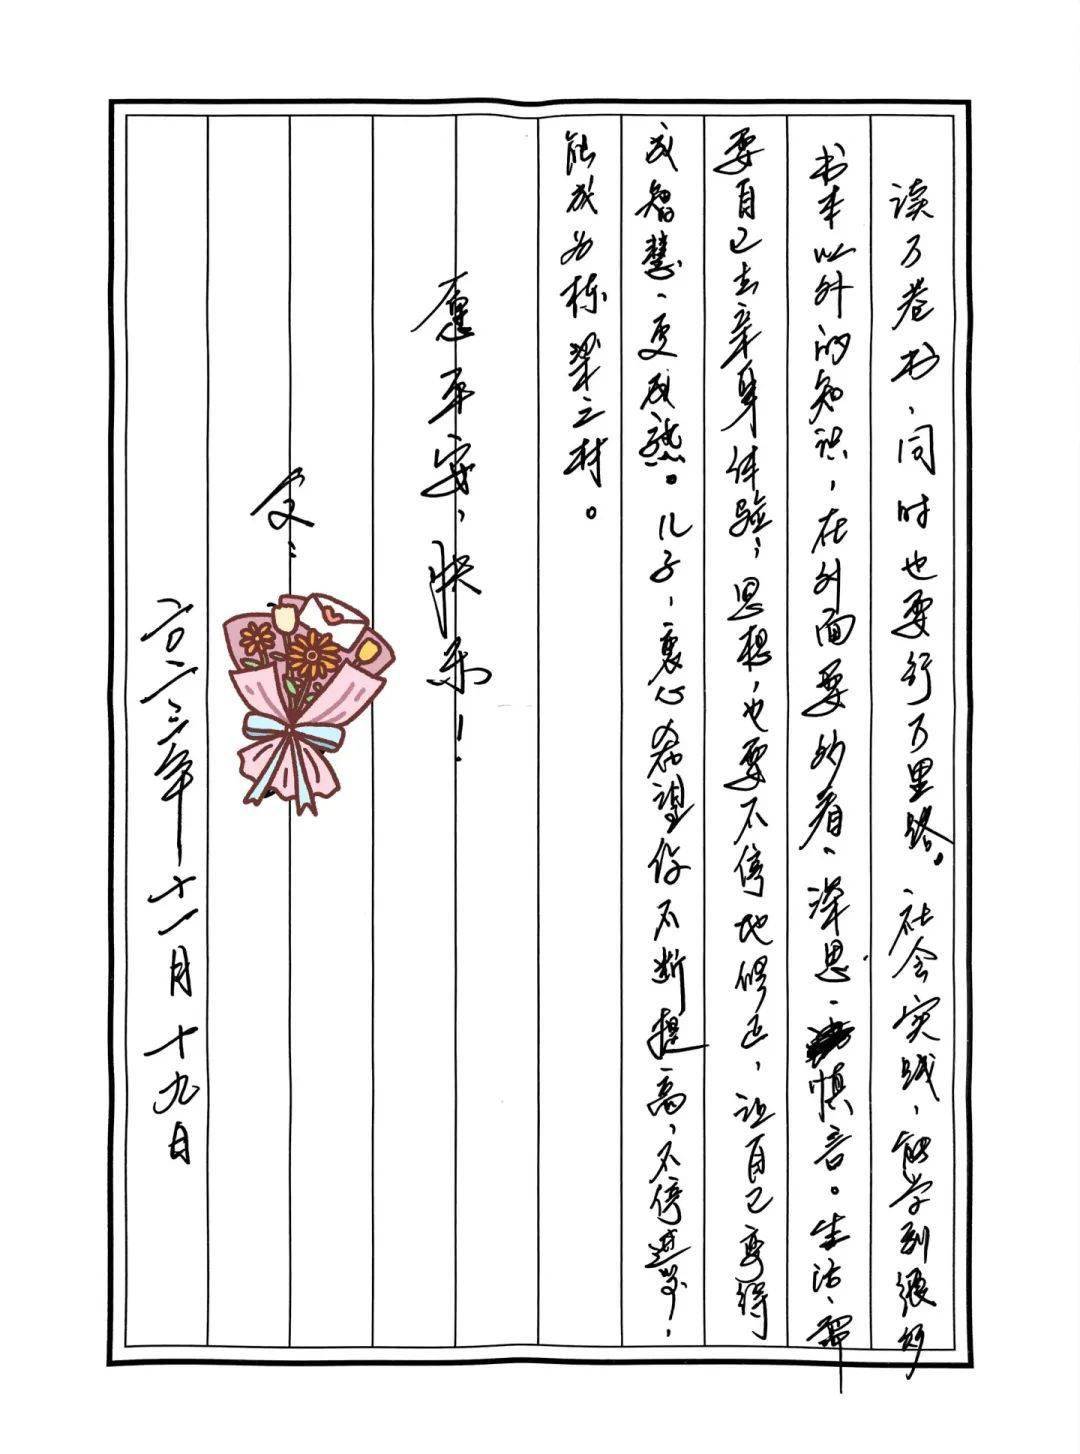 读万卷书、同时也要行万里路。社会实践，能学到很多
书本以外的知识，在外面要多看、深思、慎言。生活、都
要自己去亲身体验；思想也要不停地修正，让自己变得
智慧、更成熟。儿子，衷心希望你不断提高，不停进步，
能成为栋梁之材。
愿平安、快乐！
父：
二〇二三年十一月十九日